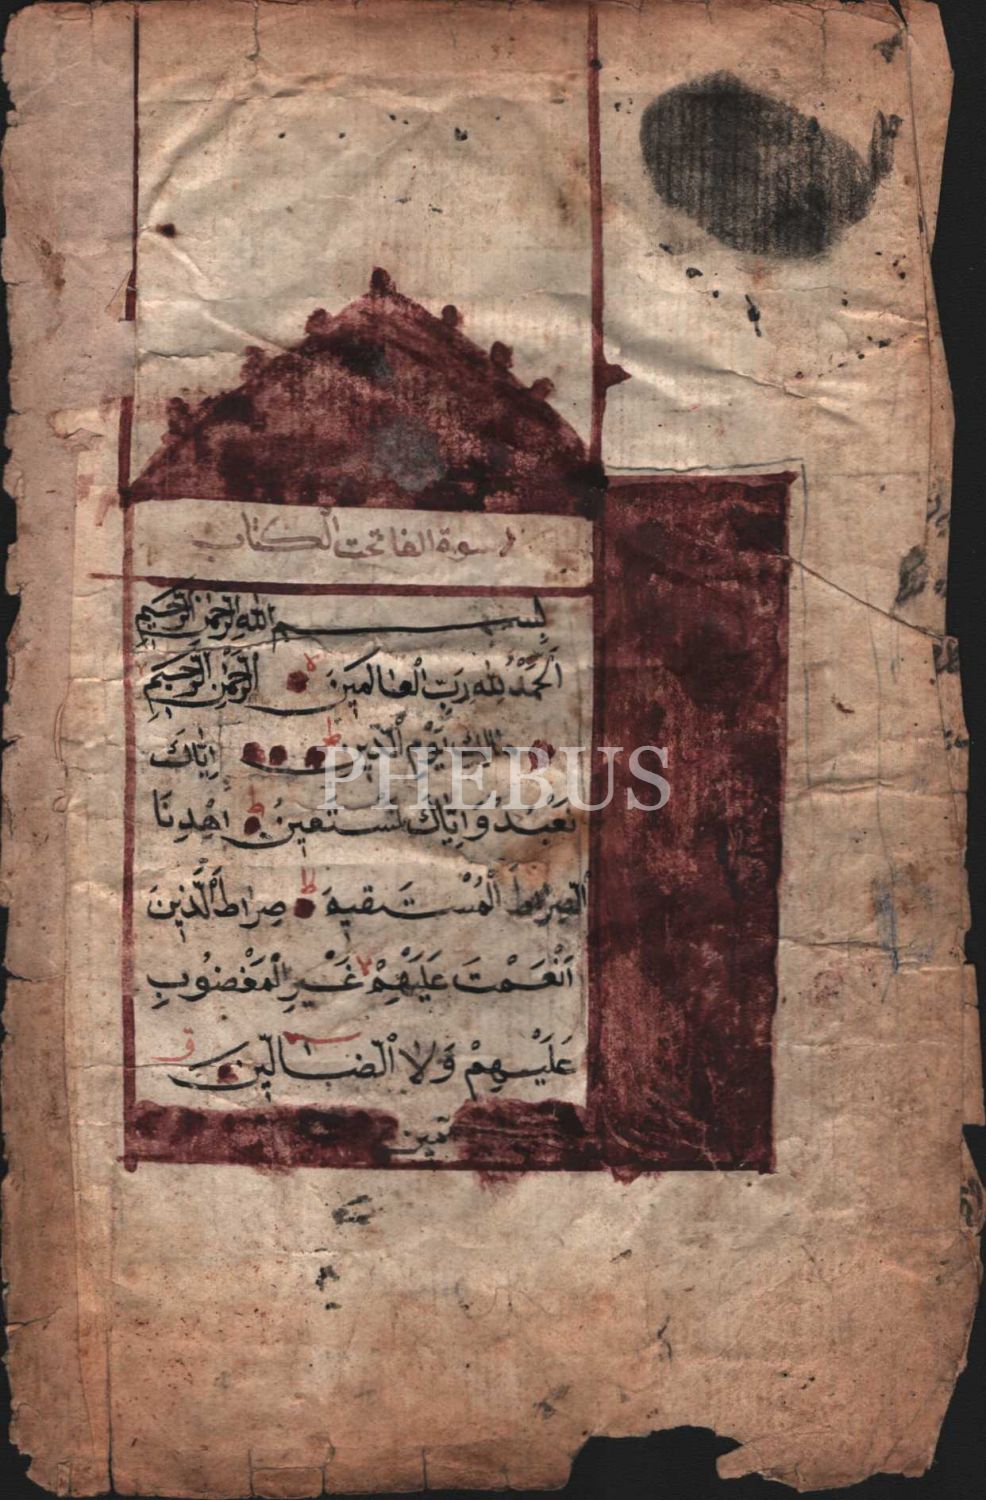 سورة الفاتحت الكتاب
بسم الله الرحمن الرحيم
اَلْحَمْدُ لِلّٰهِ رَبِّ الْعَالَمِينَ الرَّحْمٰنِ الرَّحِيمِ
مَالِكِ يَوْمِ الدِّينِ اِيَّاكَ
نَعْبُدُ وَاِيَّاكَ نَسْتَعِينُ اِهْدِنَا
الصِّرَاطَ الْمُسْتَقِيمَ صِرَاطَ الَّذِينَ
اَنْعَمْتَ عَلَيْهِمْ غَيْرِ الْمَغْضُوبِ
عَلَيْهِمْ وَلَا الضَّالِّينَ
PHEBUS